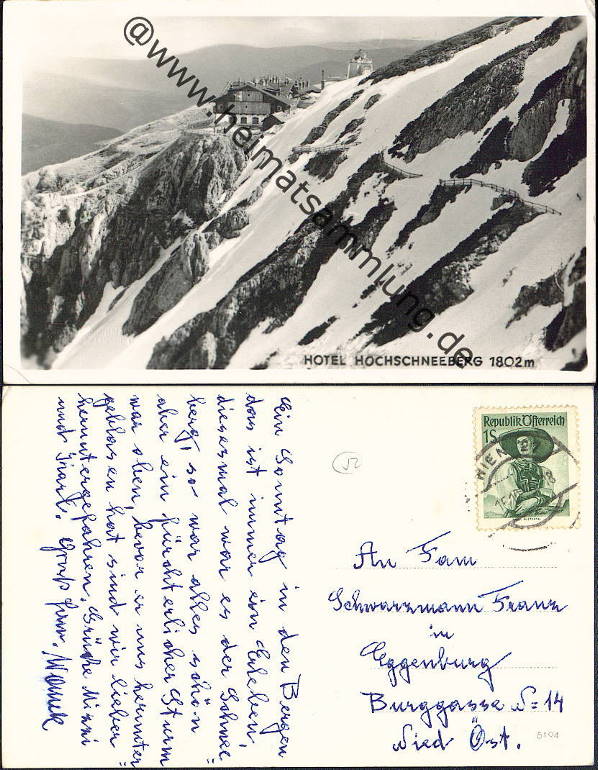 @www.heimatsammlung.de
HOTEL HOCHSCHNEEBERG 1802m
Ein Sonntag in den Bergen
das ist immer ein Erleben,
diesesmal war es der Schnee=
berg, so war alles schön
aber ein fürchterlicher Sturm
war oben, bevor er uns herunter
geblasen hat sind wir lieber=
heruntergefahren. Grüße Mizzi
und Karl. Gruß Fam.
52
Republik Österreich
1S
WIEN
An Fam
Schwarzmann Franz
in
Eggenburg
Burggasse N=14
Nied Öst.
5104